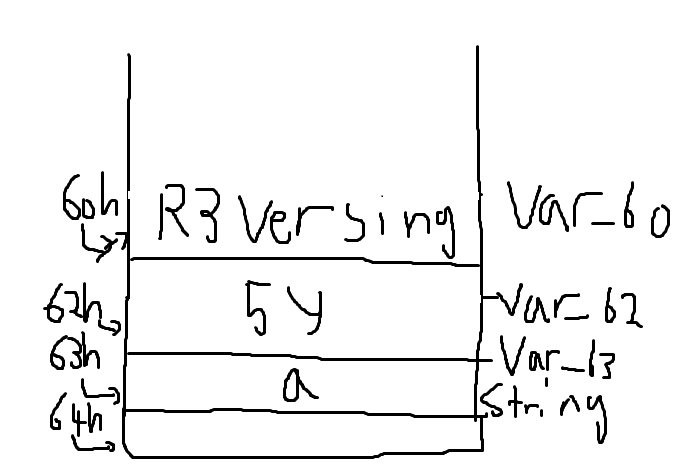 60h R3Versing Var_60
62h 5y Var_62
63h a Var_63
64h String